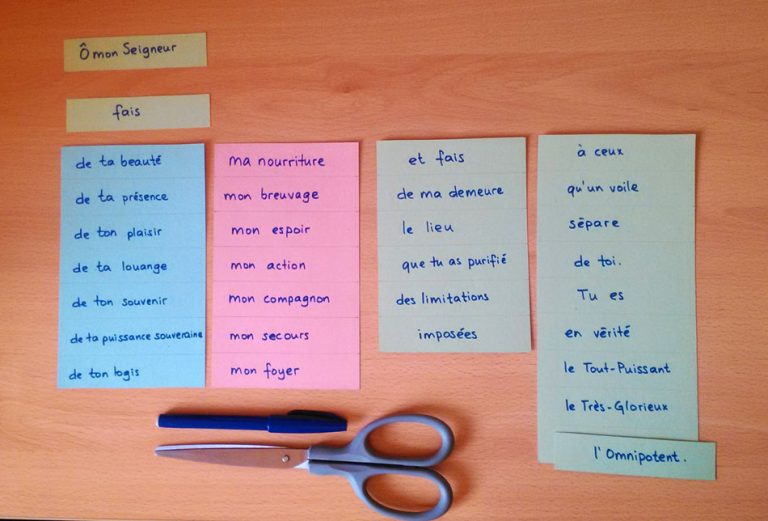 Ô mon Seigneur
fais
de ta beauté
de ta présence
de ton plaisir
de ta louange
de ton souvenir
de ta puissance souveraine
de ton logis
ma nourriture
mon breuvage
mon espoir
mon action
mon compagnon
mon secours
mon foyer
et fais
de ma demeure
le lieu
que tu as purifié
des limitations
imposées
à ceux
qu'un voile
sépare
de toi.
Tu es
en vérité
le Tout-Puissant
le Très-Glorieux
l'Omnipotent.